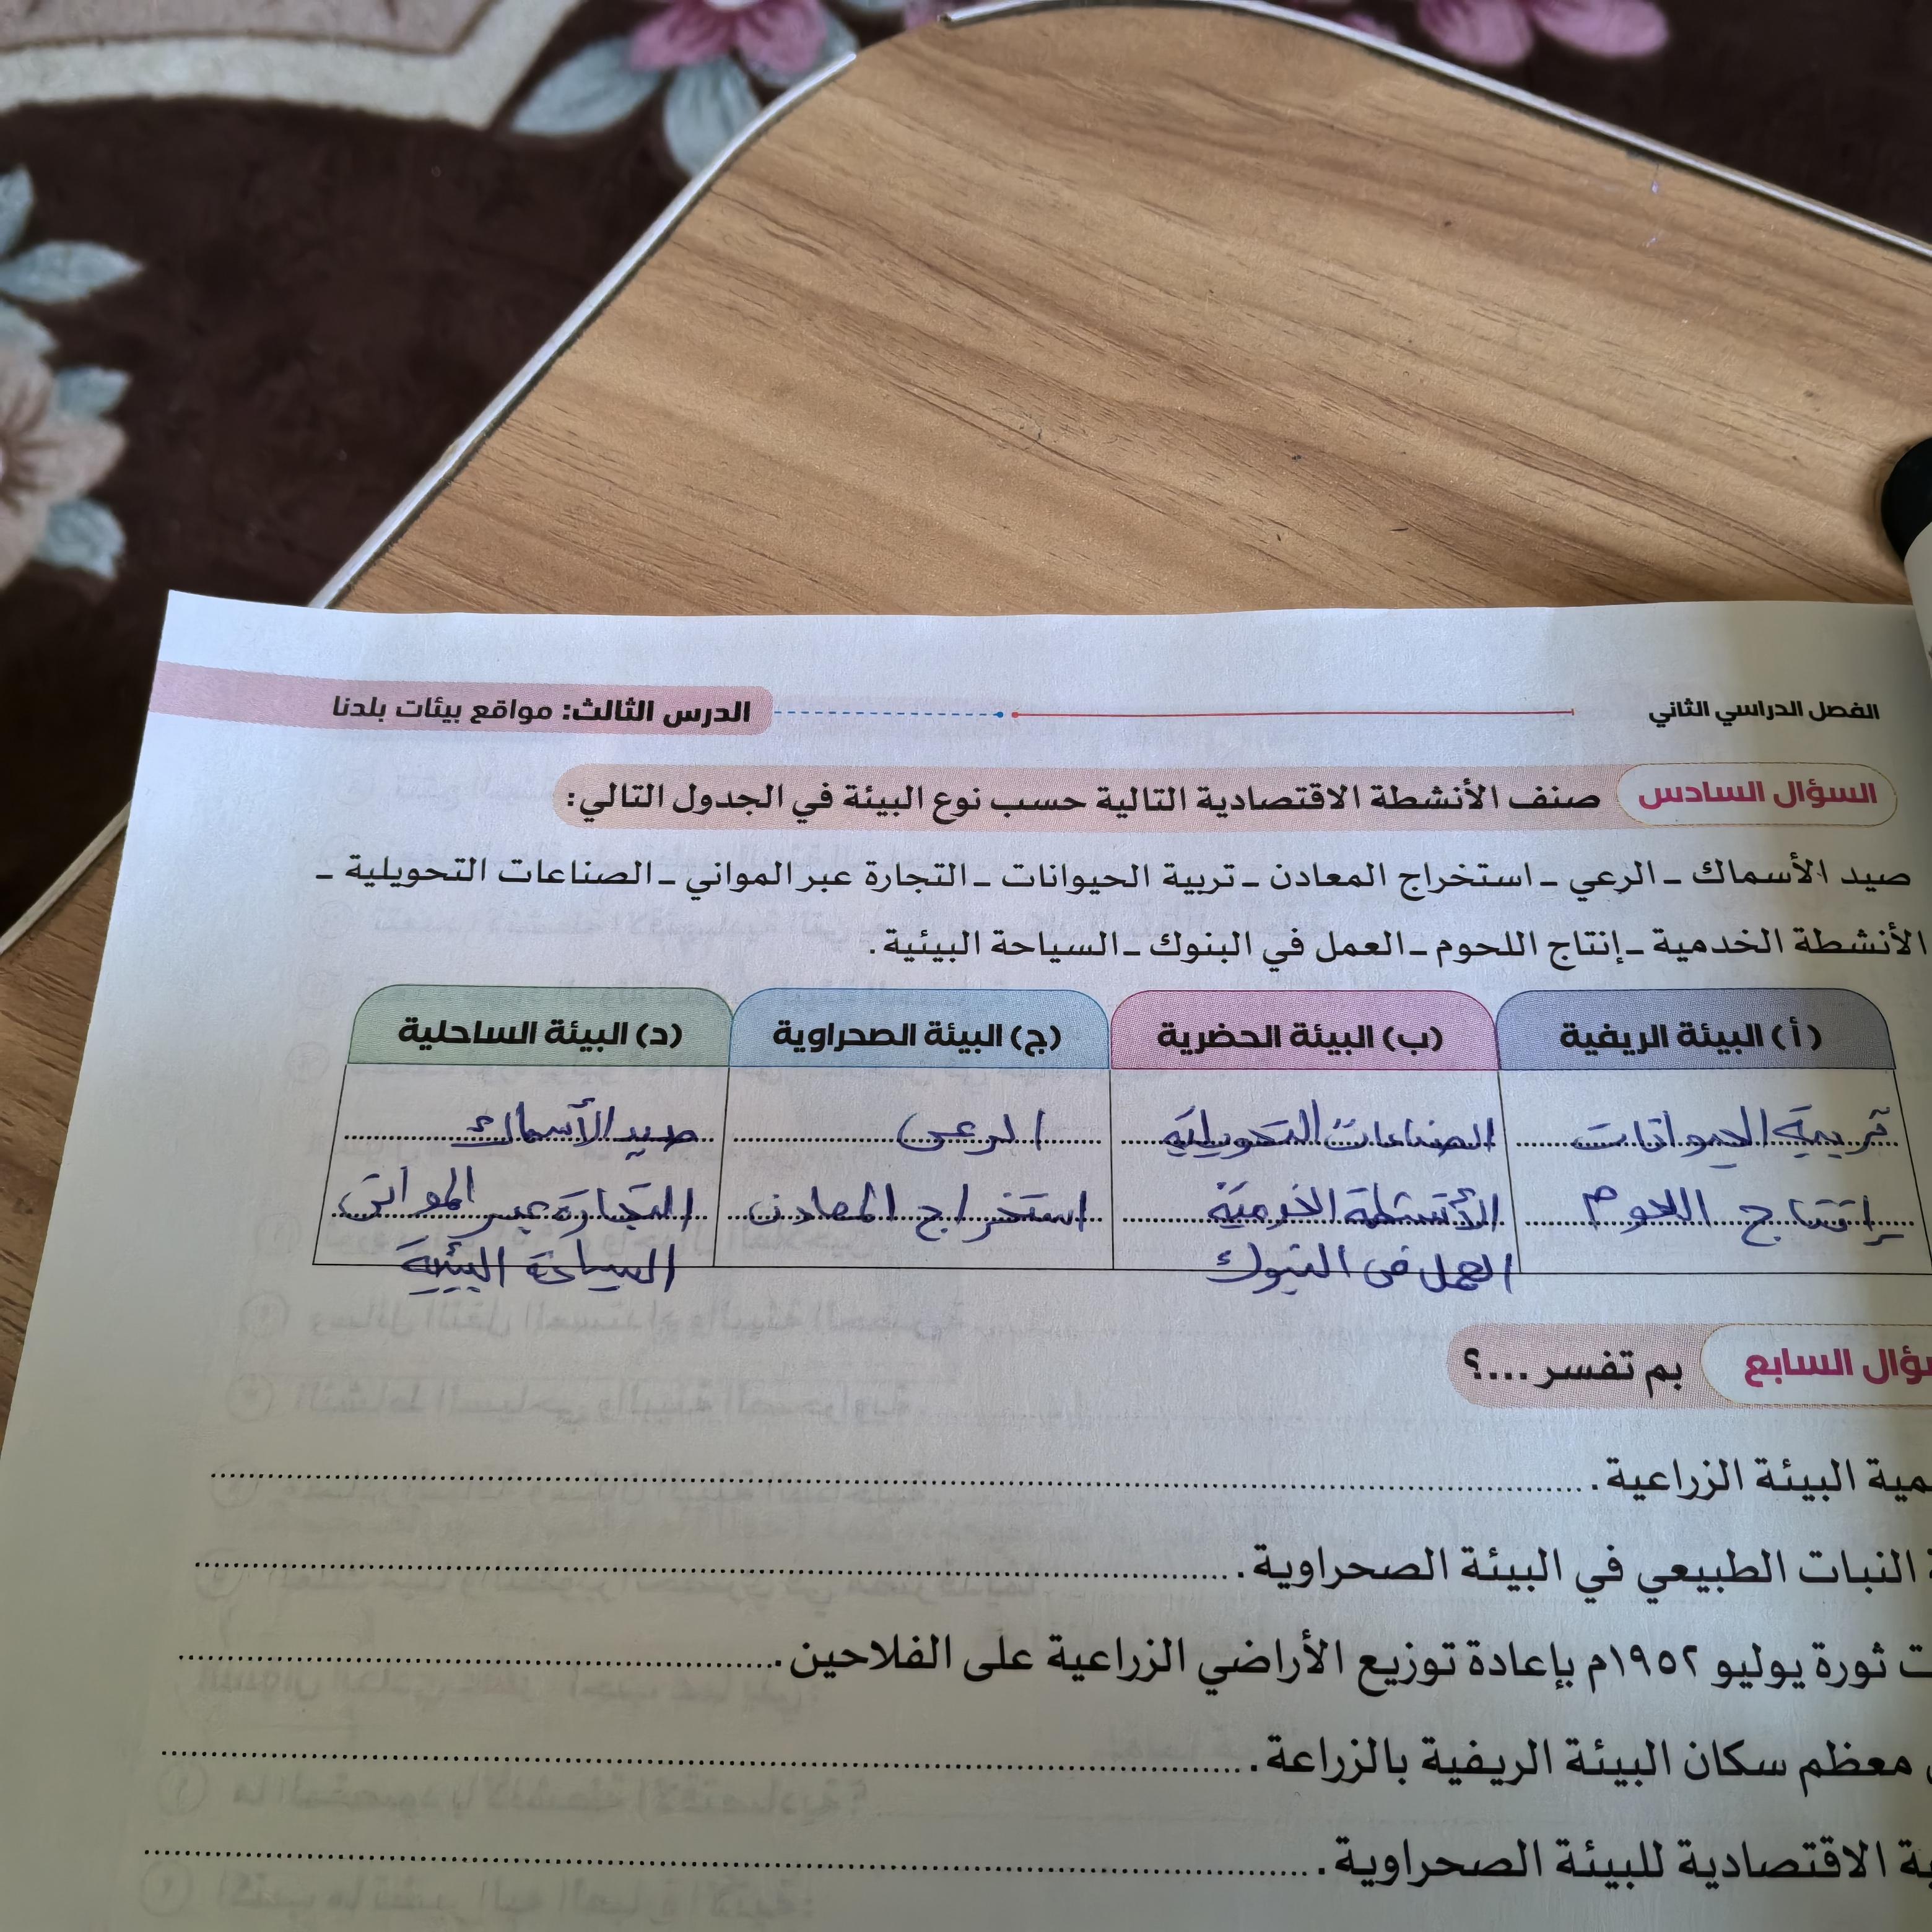 الفصل الدراسي الثاني
الدرس الثالث: مواقع بيئات بلدنا
السؤال السادس صنف الأنشطة الاقتصادية التالية حسب نوع البيئة في الجدول التالي:
صيد الأسماك - الرعي - استخراج المعادن - تربية الحيوانات - التجارة عبر المواني - الصناعات التحويلية -
الأنشطة الخدمية - إنتاج اللحوم - العمل في البنوك - السياحة البيئية.
(أ) البيئة الريفية (ب) البيئة الحضرية (ج) البيئة الصحراوية (د) البيئة الساحلية
تربية الحيوانات الصناعات التحويلية الرعى صيد الأسماك
إنتاج اللحوم الأنشطة الخدمية استخراج المعادن التجارة عبر الموانى
العمل فى البنوك السياحة البيئية
السابع بم تفسر ...؟
البيئة الزراعية.
النبات الطبيعي في البيئة الصحراوية.
ثورة يوليو ١٩٥٢م بإعادة توزيع الأراضي الزراعية على الفلاحين.
معظم سكان البيئة الريفية بالزراعة.
الاقتصادية للبيئة الصحراوية.